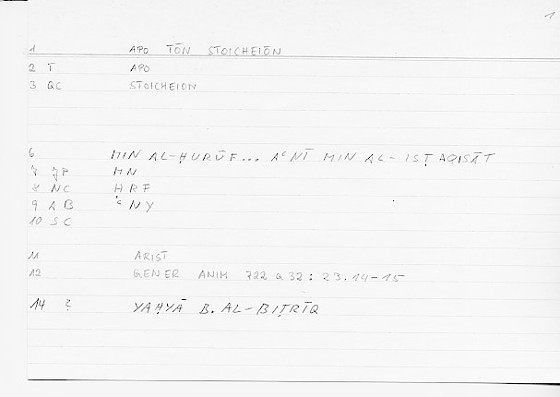 1
1 APO TŌN STOICHEIŌN
2 T APO
3 QC STOICHEION
6 MIN AL-ḤURŪF... AʿNĪ MIN AL-ISṬAQISĀT
7 JP MN
8 NC ḤRF
9 AB ʿNY
10 SC
11 ARIST
12 GENER ANIM 722 a 32: 23.14-15
14 ? YAḤYĀ B. AL-BIṬRĪQ